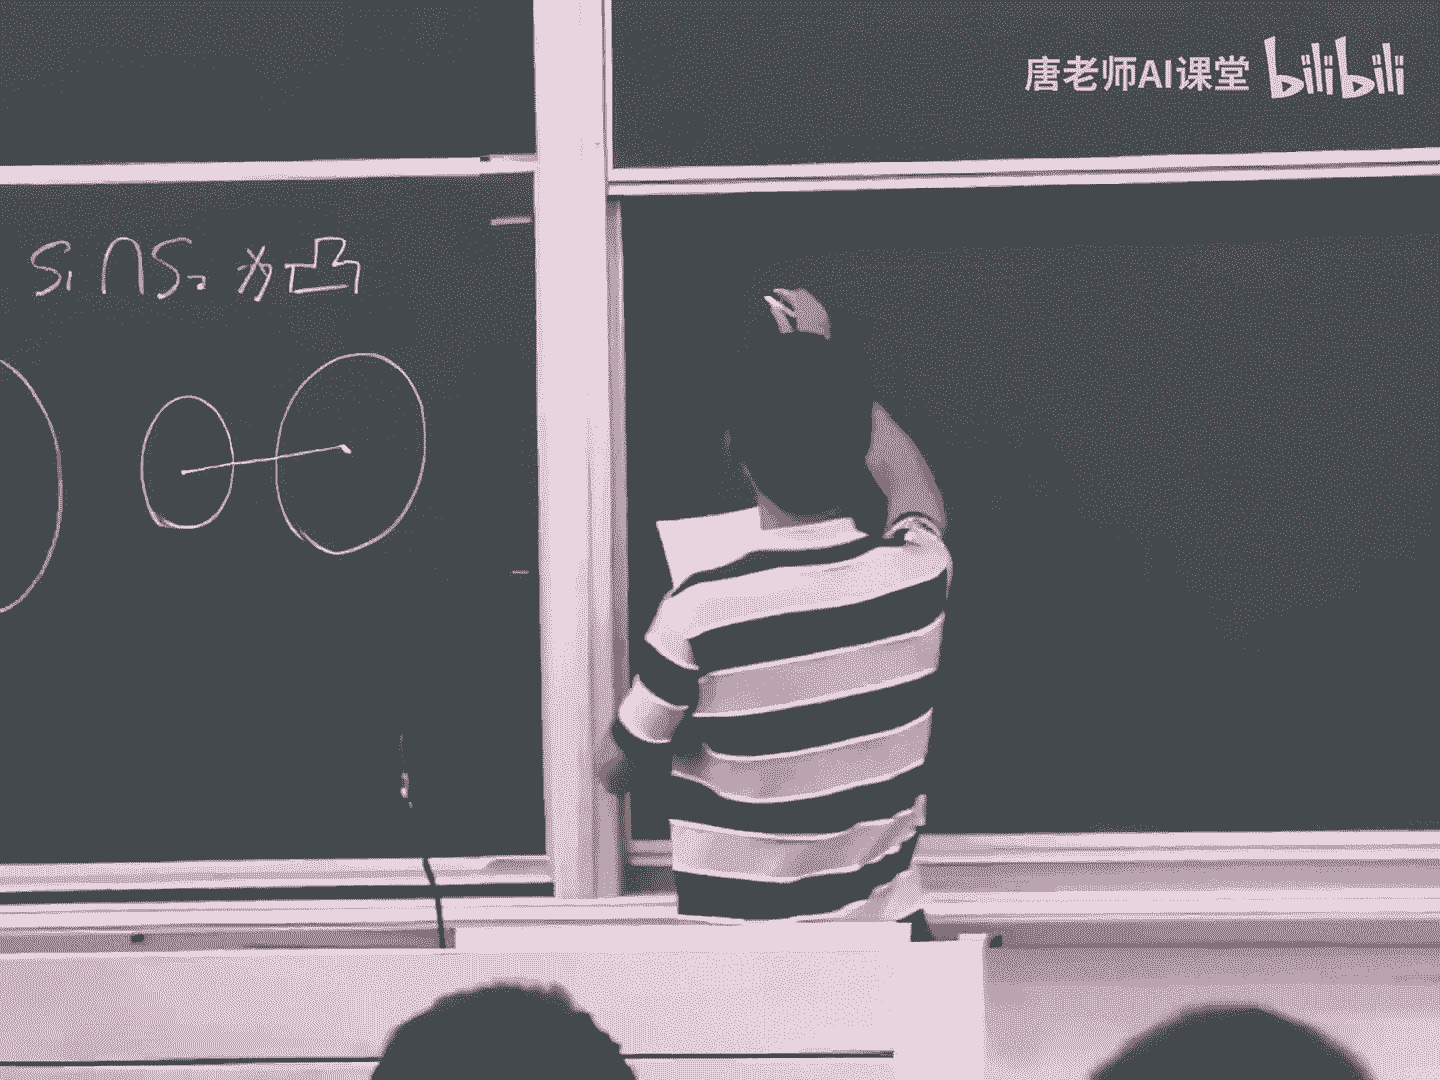 唐老师AI课堂 bilibili
S₁∩S₂ 为凸